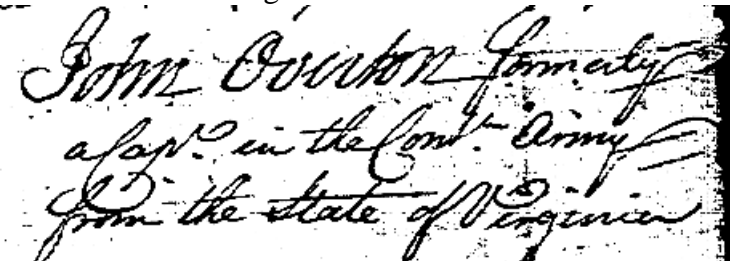 John Overton formerly
a Capt. in the Cont. Army
from the State of Virginia